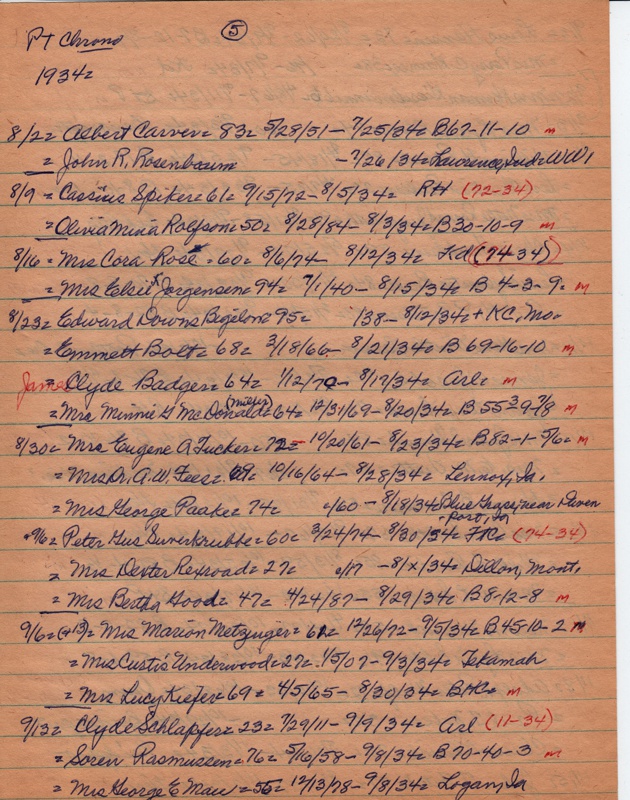 Pt Chrono ⑤
1934=
8/2= Albert Carver= 83= 5/28/51 - 7/25/34= B67-11-10 m
= John R. Rosenbaum - 7/26/34= Lawrence, Ind= WW1
8/9 = Cassius Spiker= 61= 9/15/72 - 8/5/34= RH (72-34)
= Olivia Mina Rolfson= 50= 8/28/84 - 8/3/34= B30-10-9 m
8/16 = Mrs Cora Rose = 60= 8/6/74 - 8/12/34= (74-34)
= Mrs Elsie Jorgensen= 94= 7/1/40 - 8/15/34= B 4-3-9= m
8/23= Edward Downs Bigelow= 95= 138 - 8/12/34= + KC, Mo.
= Emmett Bolt= 68= 3/18/66 - 8/21/34= B 69-16-10 m
James = Clyde Badger= 64= 1/12/70 - 8/17/34= Arl= m
= Mrs Minnie G McDonald (Miller)= 64= 12/31/69 - 8/20/34= B 55-3-9-7/8 m
8/30= Mrs Eugene A Tucker= 72= 10/20/61 - 8/23/34= B82-1-5/6= m
= Mrs Dr. A.W. Fees= 69= 10/16/64 - 8/28/34= Lennox, Ia.
= Mrs George Paake= 74= c/60 - 8/18/34= Blue Grass, near Daven
port, Ia
9/6= Peter Gus Suverkrubbe= 60= 3/24/74 - 8/30/34= FTC= (74-34)
= Mrs Dexter Rexroad= 27= c/17 - 8/x/34= Dillon, Mont.
= Mrs Bertha Good= 47= 4/24/87 - 8/29/34= B8-12-8 m
9/6= (+13)= Mrs Marion Metzinger= 61= 12/26/72 - 9/5/34= B45-10-2 m
= Mrs Curtis Underwood= 27= 1/5/07 - 9/3/34= Tekamah
= Mrs Lucy Kiefer= 69= 4/5/65 - 8/30/34= BHC= m
9/13= Clyde Schlapfer= 23= 7/29/11 - 9/9/34= Arl (11-34)
= Soren Rasmussen= 76= 5/16/58 - 9/8/34= B 70-40-3 m
= Mrs George E Mau= 55= 12/13/78 - 9/8/34= Logan, Ia